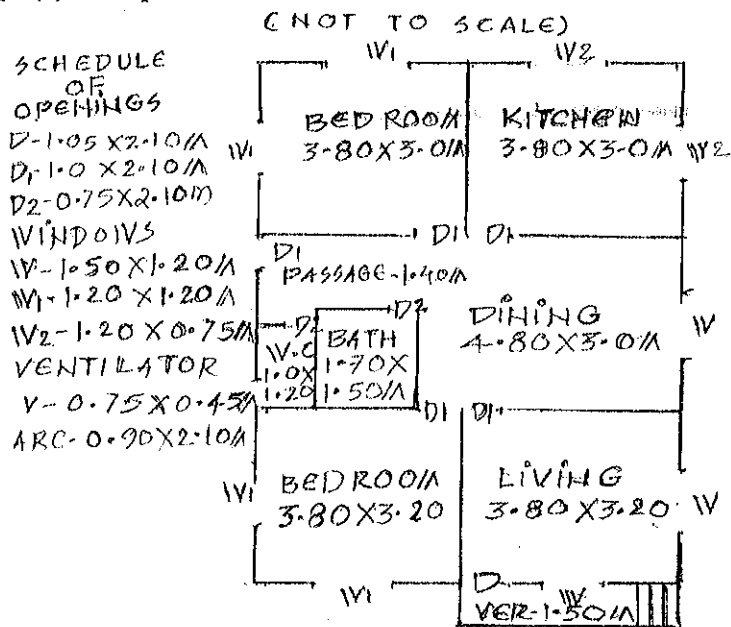 (NOT TO SCALE)
SCHEDULE
OF
OPENINGS
D-1.05X2.10M
D1-1.0X2.10M
D2-0.75X2.10m
WINDOWS
W-1.50X1.20M
W1-1.20X1.20M
W2-1.20X0.75M
VENTILATOR
V-0.75X0.45M
ARC-0.90X2.10M
W1
W2
W1
BED ROOM
3.80X3.0M
KITCHEN
3.80X3.0M
W2
D1
D1
D1
PASSAGE-1.40M
D2
D2
W.C
1.0X
1.20
BATH
1.70X
1.50M
DINING
4.80X3.0M
W
D1
D1
W1
BED ROOM
3.80X3.20
LIVING
3.80X3.20
W
W1
D
W
VER-1.50M